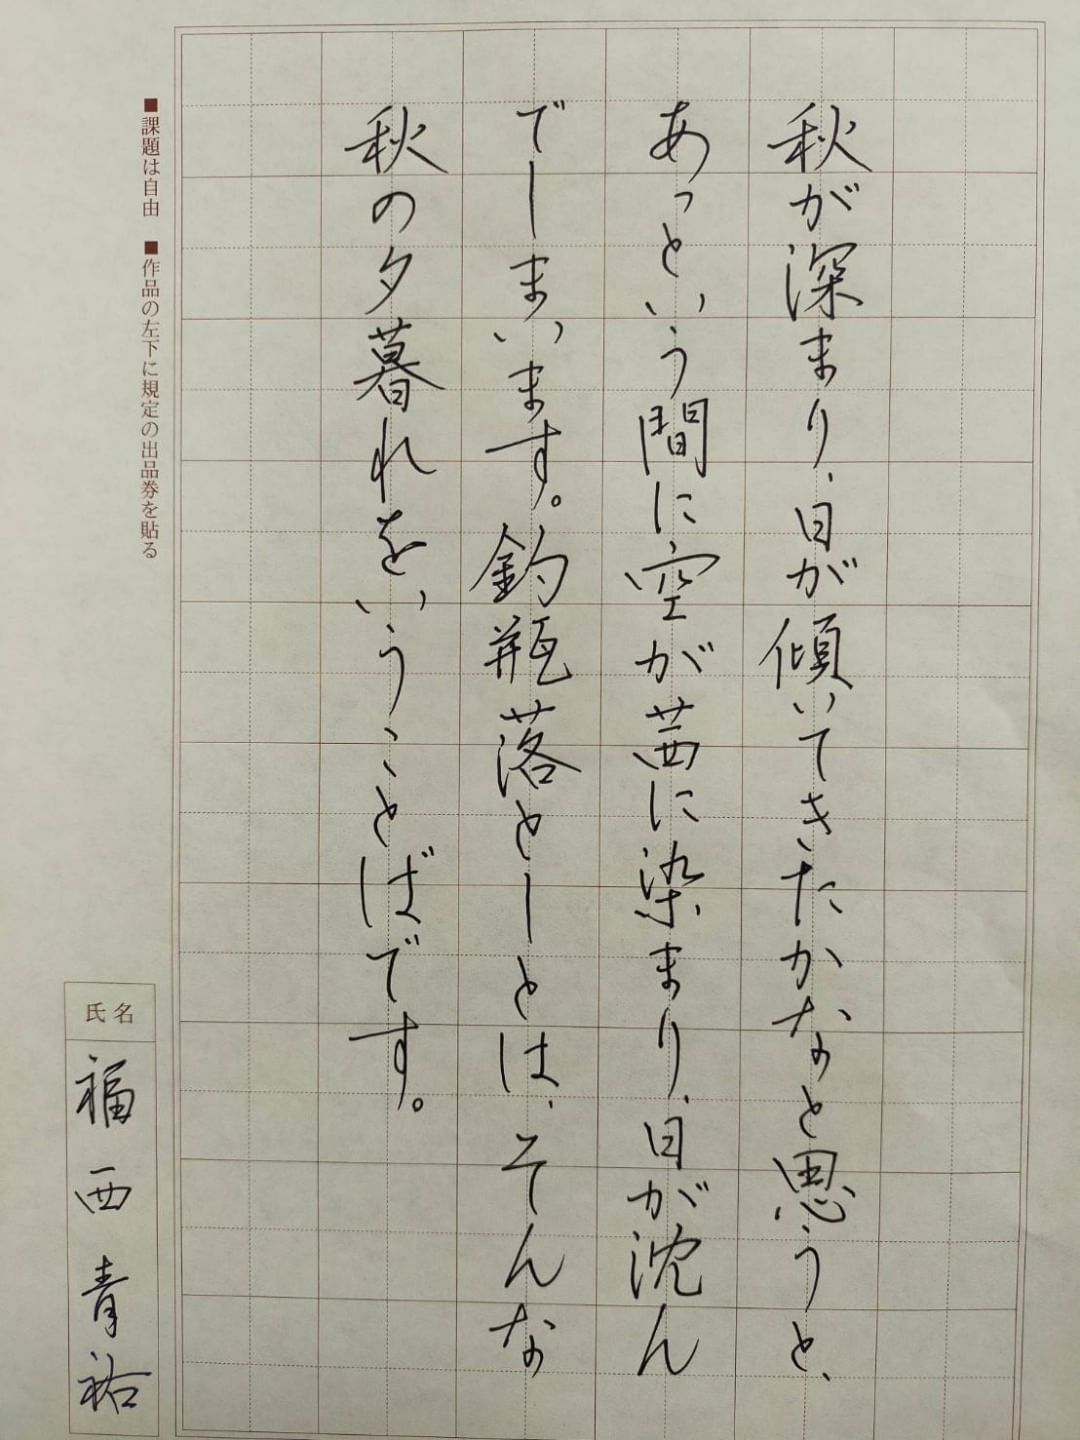 秋が深まり、日が傾いてきたかなと思うと、
あっという間に空が茜に染まり、日が沈ん
でしまいます。釣瓶落としとは、そんな
秋の夕暮れをいうことばです。
■課題は自由 ■作品の左下に規定の出品券を貼る
氏名
福西青裕